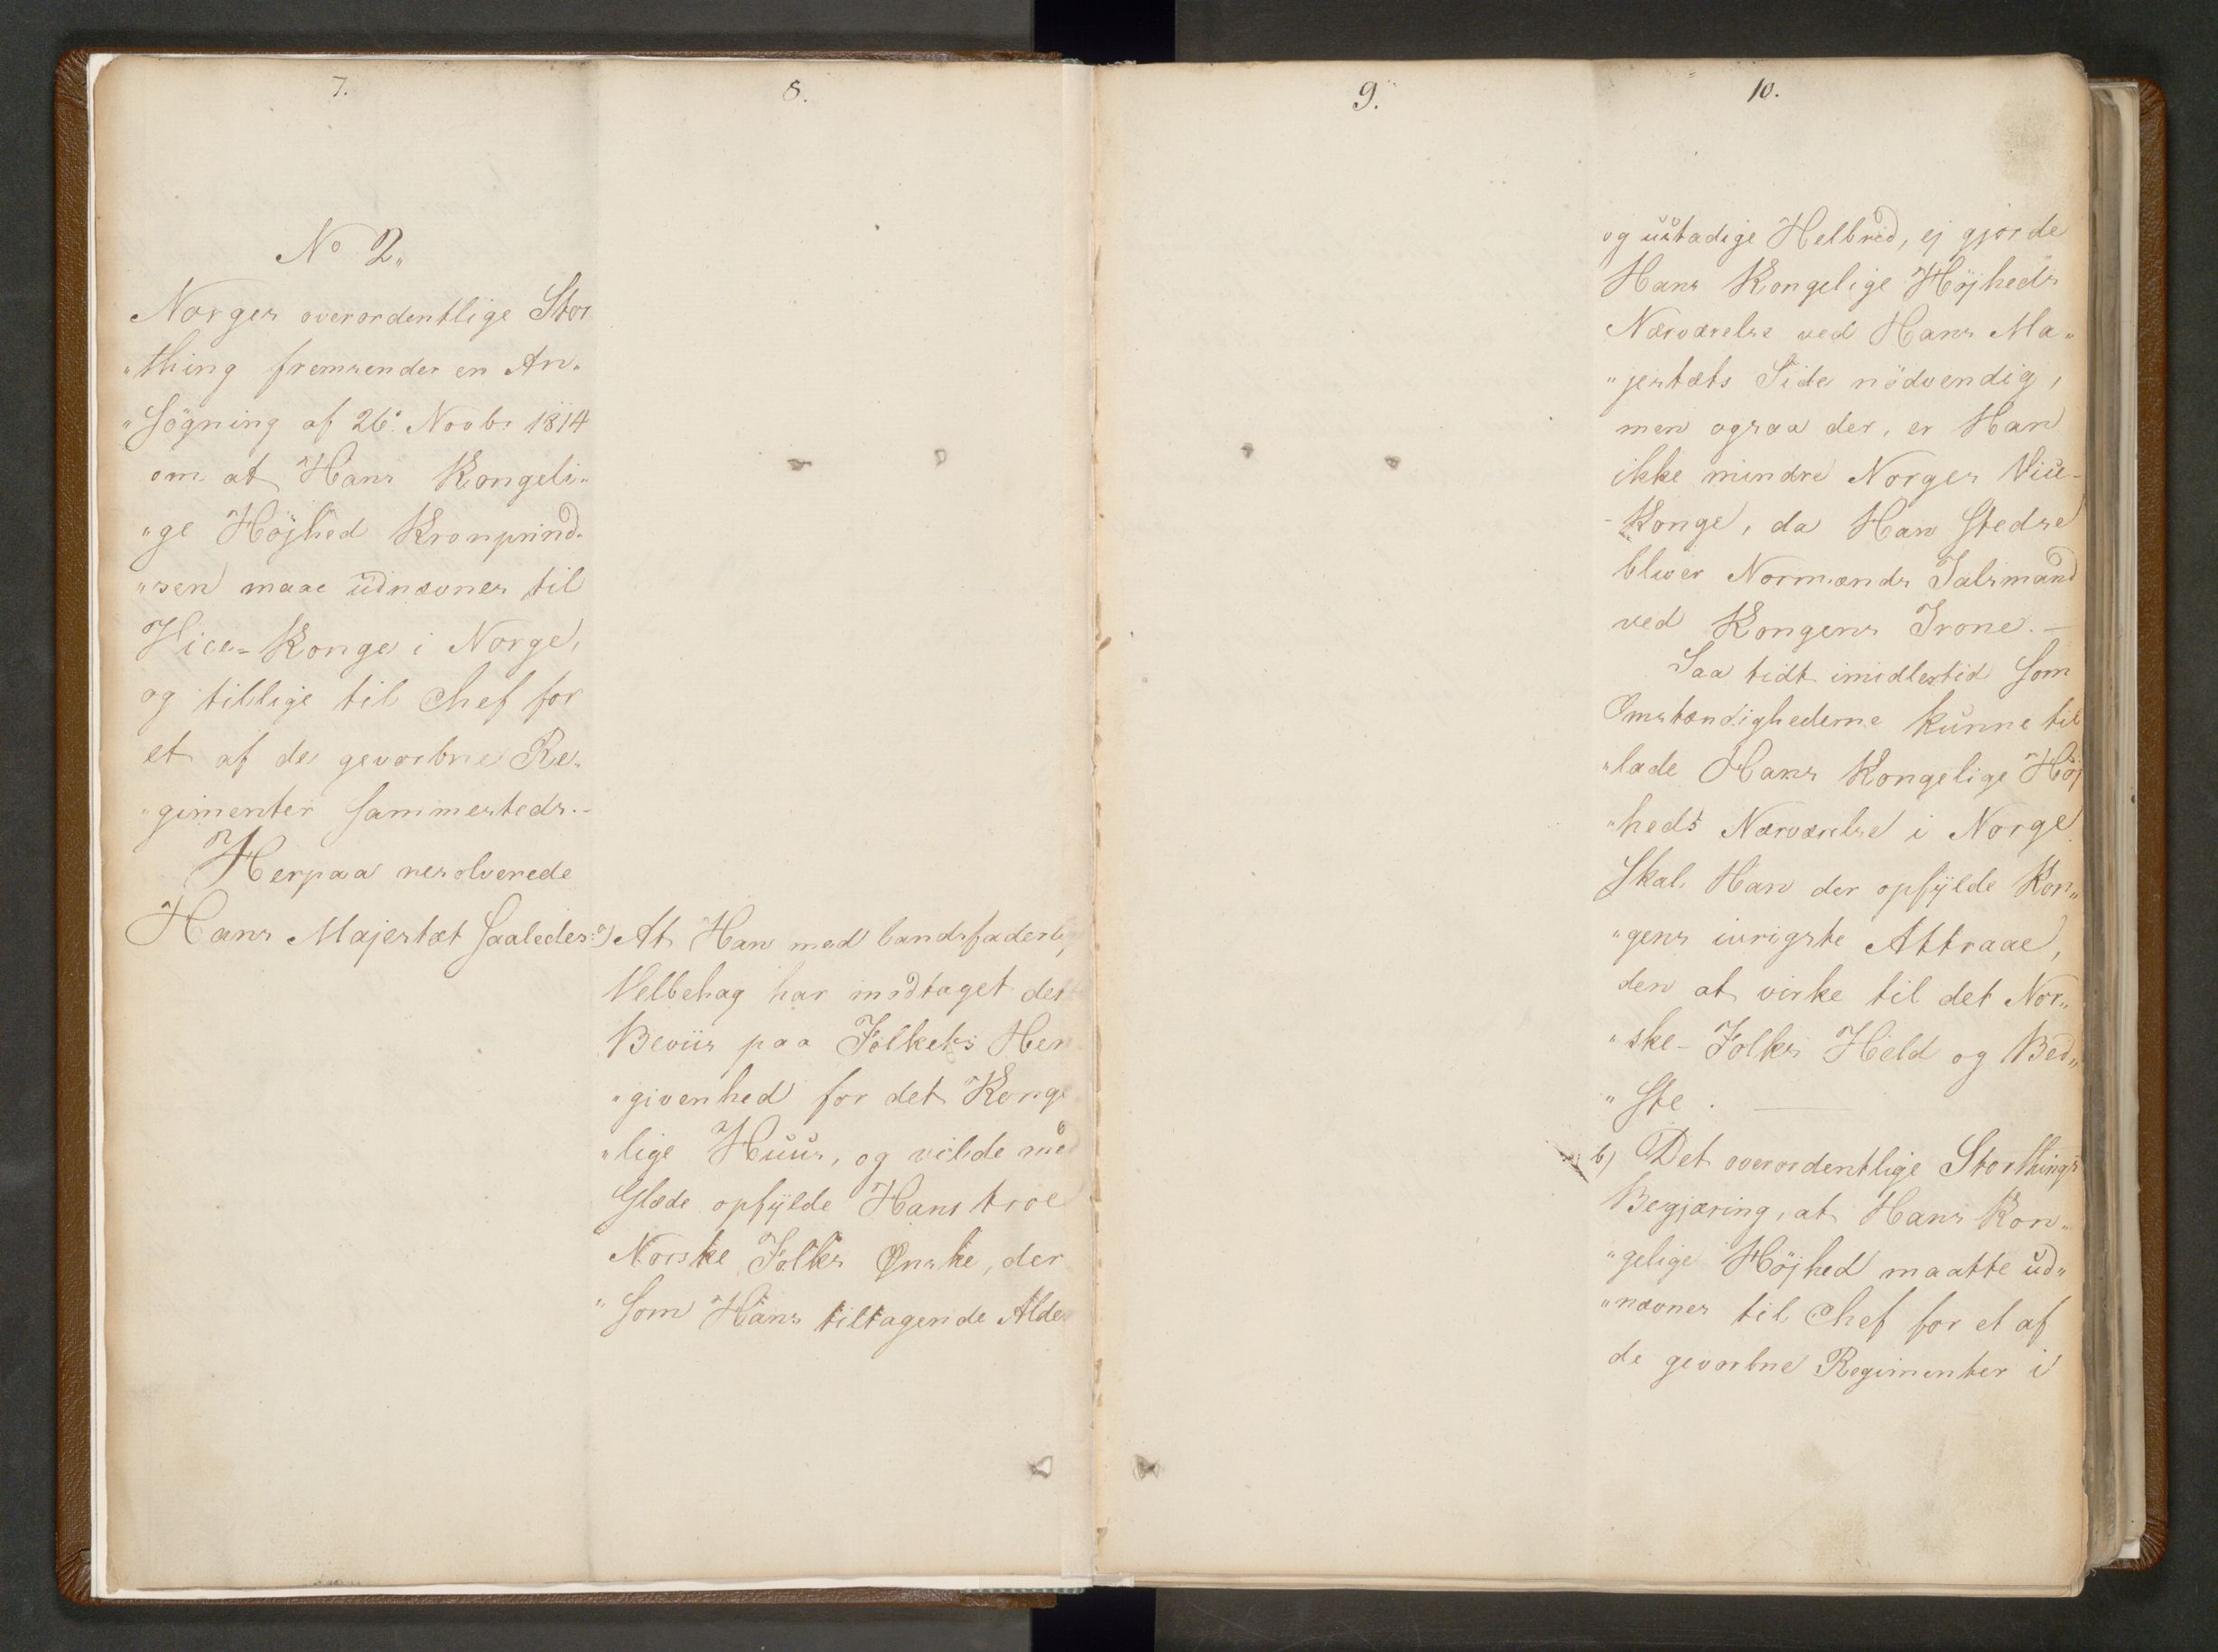 7.
No 2.
Norges overordentlige Stor
"thing fremsender en An"
"søgning af 26de Novbr 1814
om at Hans Kongeli"
"ge Højhed Kronprind"
"sen maae udnævnes til
Vice=Konge i Norge,
og tillige til Chef for
et af de gevorbne Re"
"gimenter sammesteds.-
Herpaa resolverede
Hans Majestæt saaledes:
8.
a) At Han med landsfaderlig
Velbehag har modtaget det
Beviis paa Folkets Hen
"givenhed for det Konge
"lige Huus, og vilde med
Glæde opfylde Hans troe
Norske Folks Ønske, der
"som Hans tiltagende Alder
9.
10.
og ustadige Helbred, ej gjorde
Hans Kongelige Højheds
Nærværelse ved Hans Ma"
"jestæts Side nödvendig,
men ogsaa der, er Han
ikke mindre Norges Vice-
-Konge, da Han stedse
bliver Normænds Talsmand
ved Kongens Trone.-
Saa tidt imidlertid som
Omstændighederne kunne til
"lade Hans Kongelige Høj
"heds Nærværelse i Norge
skal Han der opfylde Kon"
"gens ivrigste Attraae,
den at virke til det Nor"
"ske- Folks Held og Bed"
"ste.
b) Det overordentlige Storthings
Begjæring, at Hans Kon"
"gelige Højhed maatte ud"
"nævnes til Chef for et af
de gevorbne Regimenter i